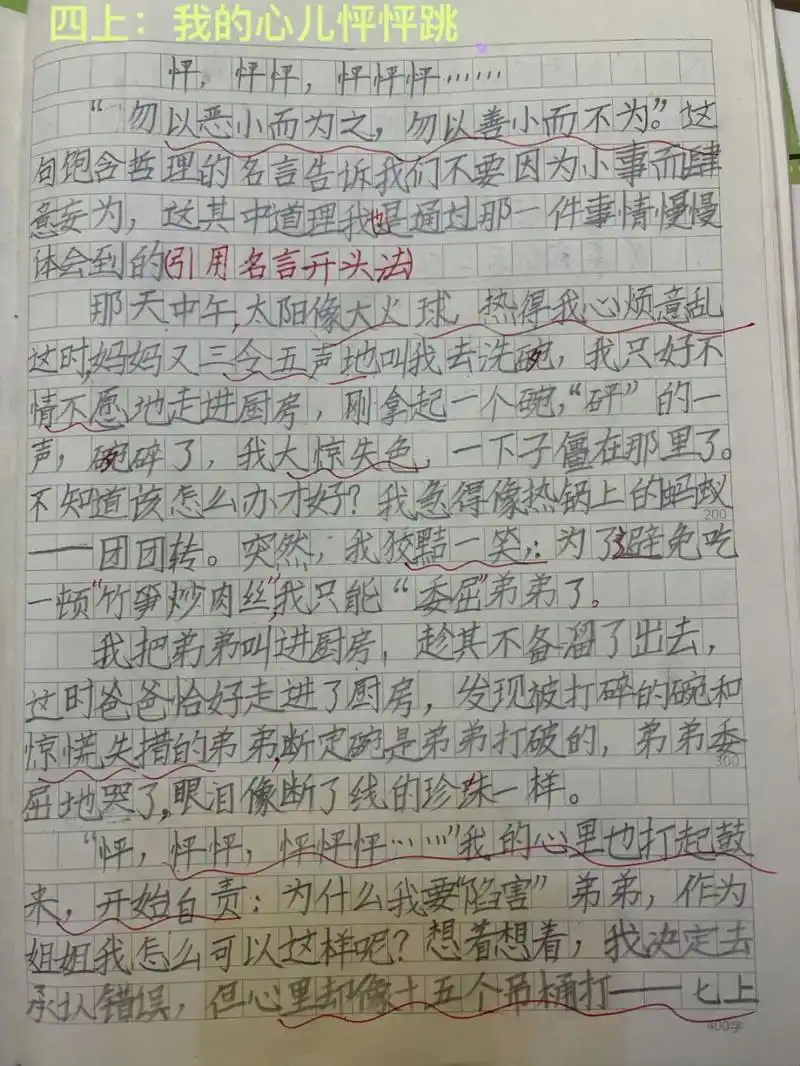 四上：我的心儿怦怦跳
怦，怦怦，怦怦怦……
“勿以恶小而为之，勿以善小而不为。”这
句饱含哲理的名言告诉我们不要因为小事而肆
意妄为，这其中道理我也是通过那一件事情慢慢
体会到的(引用名言开头法)
那天中午,太阳像大火球 热得我心烦意乱
这时,妈妈又三令五声地叫我去洗碗，我只好不
情不愿地走进厨房，刚拿起一个碗，“砰”的一
声，碗碎了，我大惊失色，一下子僵在那里了。
不知道该怎么办才好？我急得像热锅上的蚂蚁
200
——团团转。突然，我狡黠一笑，：为了避免吃
一顿“竹笋炒肉丝”，我只能“委屈”弟弟了。
我把弟弟叫进厨房，趁其不备溜了出去，
这时爸爸恰好走进了厨房，发现被打碎的碗和
惊慌失措的弟弟,断定碗是弟弟打破的，弟弟委
300
屈地哭了,眼泪像断了线的珍珠一样。
“怦，怦怦，怦怦怦……”我的心里也打起鼓
来，开始自责：为什么我要“陷害”弟弟，作为
姐姐我怎么可以这样呢？想着想着，我决定去
承认错误，但心里却像十五个吊桶打——七上
400字